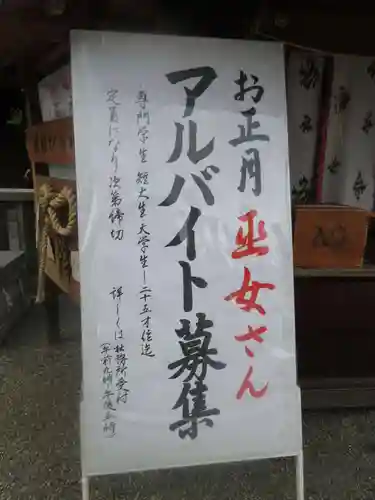 お正月 巫女さん
アルバイト募集
専門学生 短大生 大学生 二十五才位迄
定員になり次第締切
詳しくは社務所受付
(午前九時 午後五時)